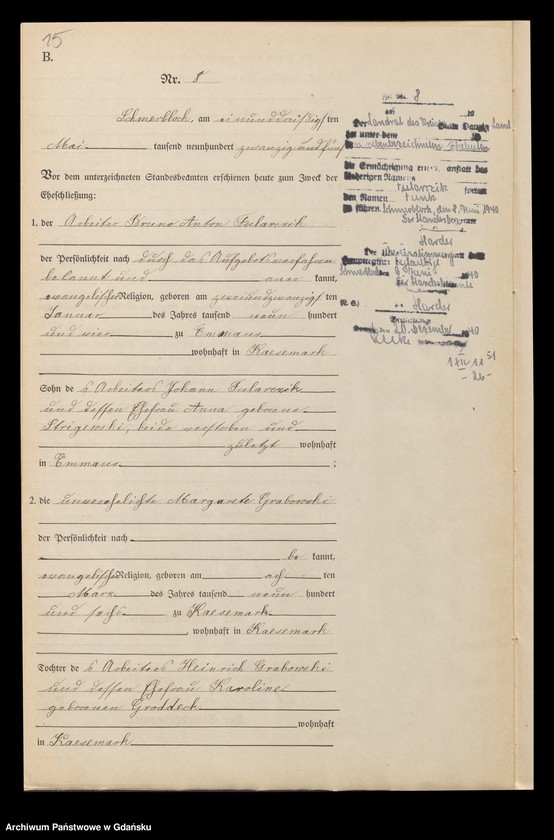 15
B.
Nr. 8
Schmerblock, am einunddreißigsten
Mai tausend neunhundert zwanzig und fünf
Vor dem unterzeichneten Standesbeamten erschienen heute zum Zweck der
Eheschließung:
1. der Arbeiter Bruno Anton Fularczik
der Persönlichkeit nach durch das Aufgebotsverfahren
bekannt und kannt,
evangelischer Religion, geboren am zweiundzwanzigsten
Januar des Jahres tausend neun hundert
und vier zu Emmaus
wohnhaft in Kaesemark
Sohn des Arbeiters Johann Fularczik
und dessen Ehefrau Anna geborene
Strigewski, beide verstorben und
zuletzt wohnhaft
in Emmaus ;
2. die unverehelichte Margarete Grabowski
der Persönlichkeit nach
be kannt,
evangelischer Religion, geboren am ach ten
März des Jahres tausend neun hundert
und sechs zu Kaesemark
, wohnhaft in Kaesemark
Tochter des Arbeiters Heinrich Grabowski
und dessen Ehefrau Karoline
geborenen Groddeck
wohnhaft
in Kaesemark
8
Der Landrat des Kreises Danzig Land
hat unter dem
den nebenbezeichneten Eheleuten
die Ermächtigung erteilt, anstatt des
bisherigen Namens
Fularczik fortan
den Namen Funk
zu führen. Schmerblock, den 8. Juni 1940
Der Standesbeamte
Harder
Die Übereinstimmung
beglaubigt
Schmerblock 9 Juni 1940
Der Standesbeamte
Harder
20. Dezember 40
- 26 -
Archiwum Państwowe w Gdańsku